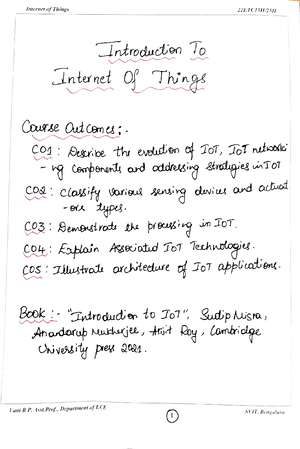 Internet of Things
Introduction To
Internet Of Things
Course Outcomes:-
CO1 : Describe the evolution of IoT, IoT networki
-ng components and addressing strategies in IoT
CO2 : Classify various sensing devices and actuat
-ors types.
CO3 : Demonstrate the processing in IoT.
CO4 : Explain Associated IoT Technologies.
CO5 : Illustrate architecture of IoT applications.
Book :- "Introduction to IoT", Sudip Misra,
Anandarup Mukherjee, Arijit Roy, Cambridge
University press 2021.
Vani B P, Asst.Prof., Department of ECE
1
SVIT, Bengaluru